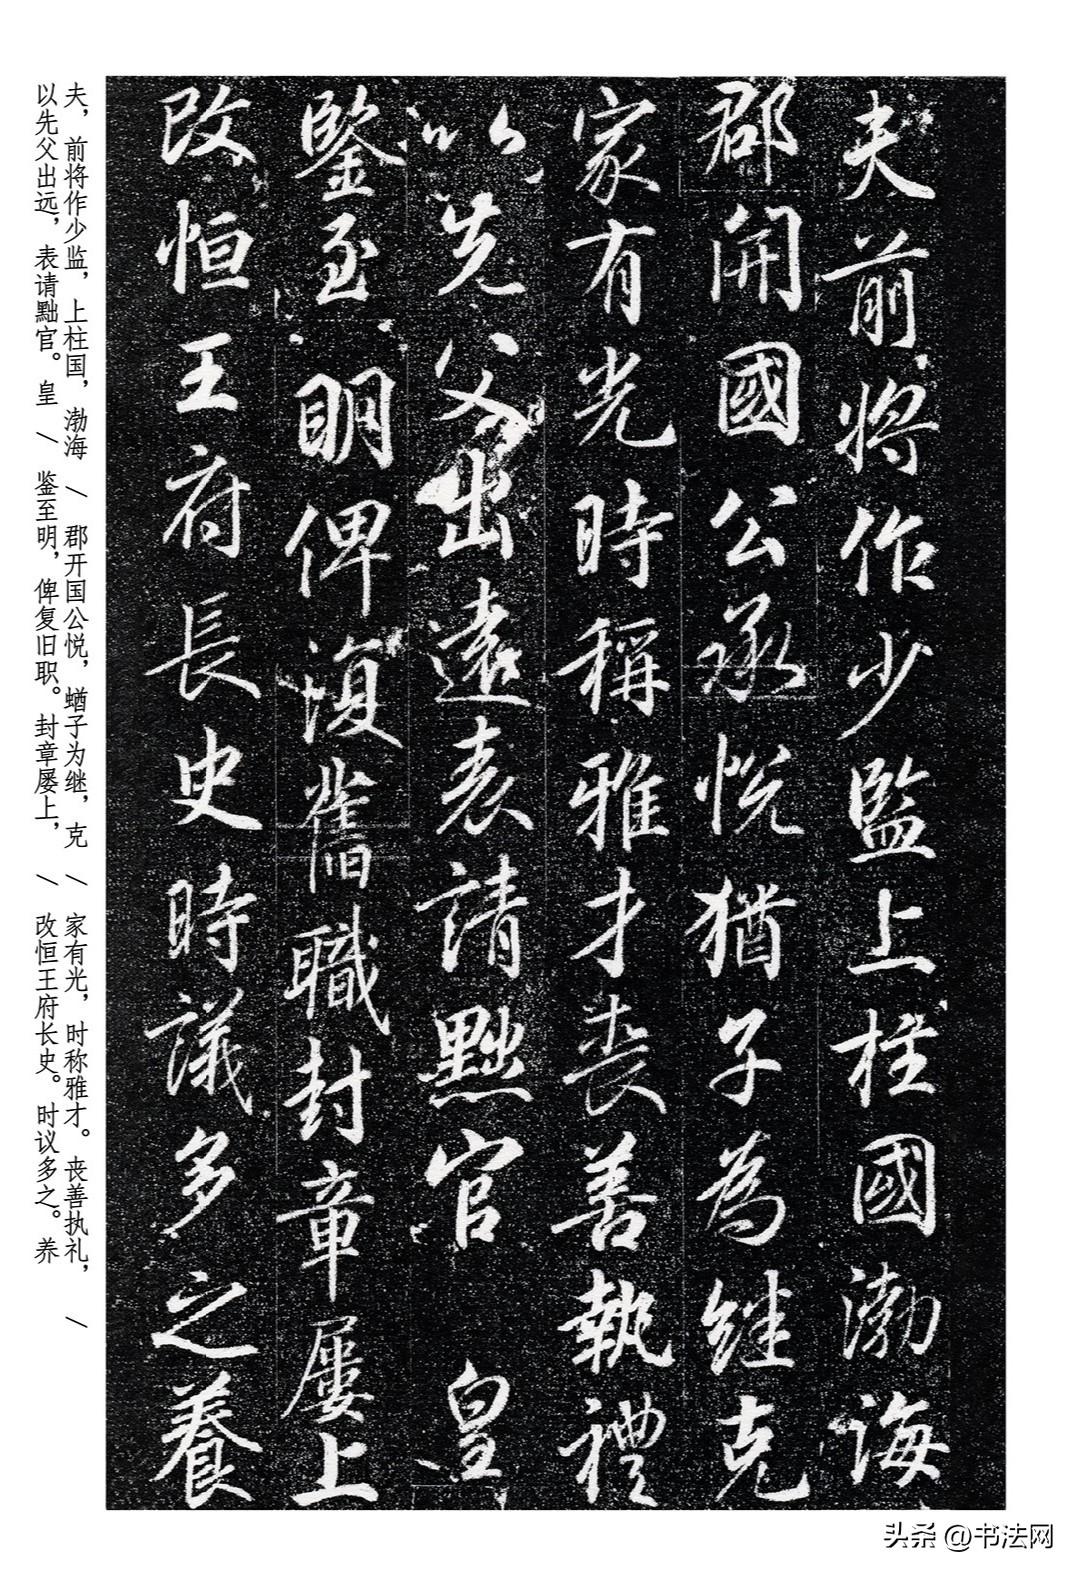 夫前将作少監上柱國渤海
郡開國公承悦猶子為継克
家有光時稱雅才丧善執禮
以先父出遠表請黜官 皇
鑒至明俾復舊職封章屢上
改恒王府長史時議多之養
夫，前将作少监，上柱国，渤海 / 郡开国公悦，蝤子为继，克 / 家有光，时称雅才。丧善执礼， /
以先父出远，表请黜官。皇 / 鉴至明，俾复旧职。封章屡上， / 改恒王府长史。时议多之。养
头条 @书法网